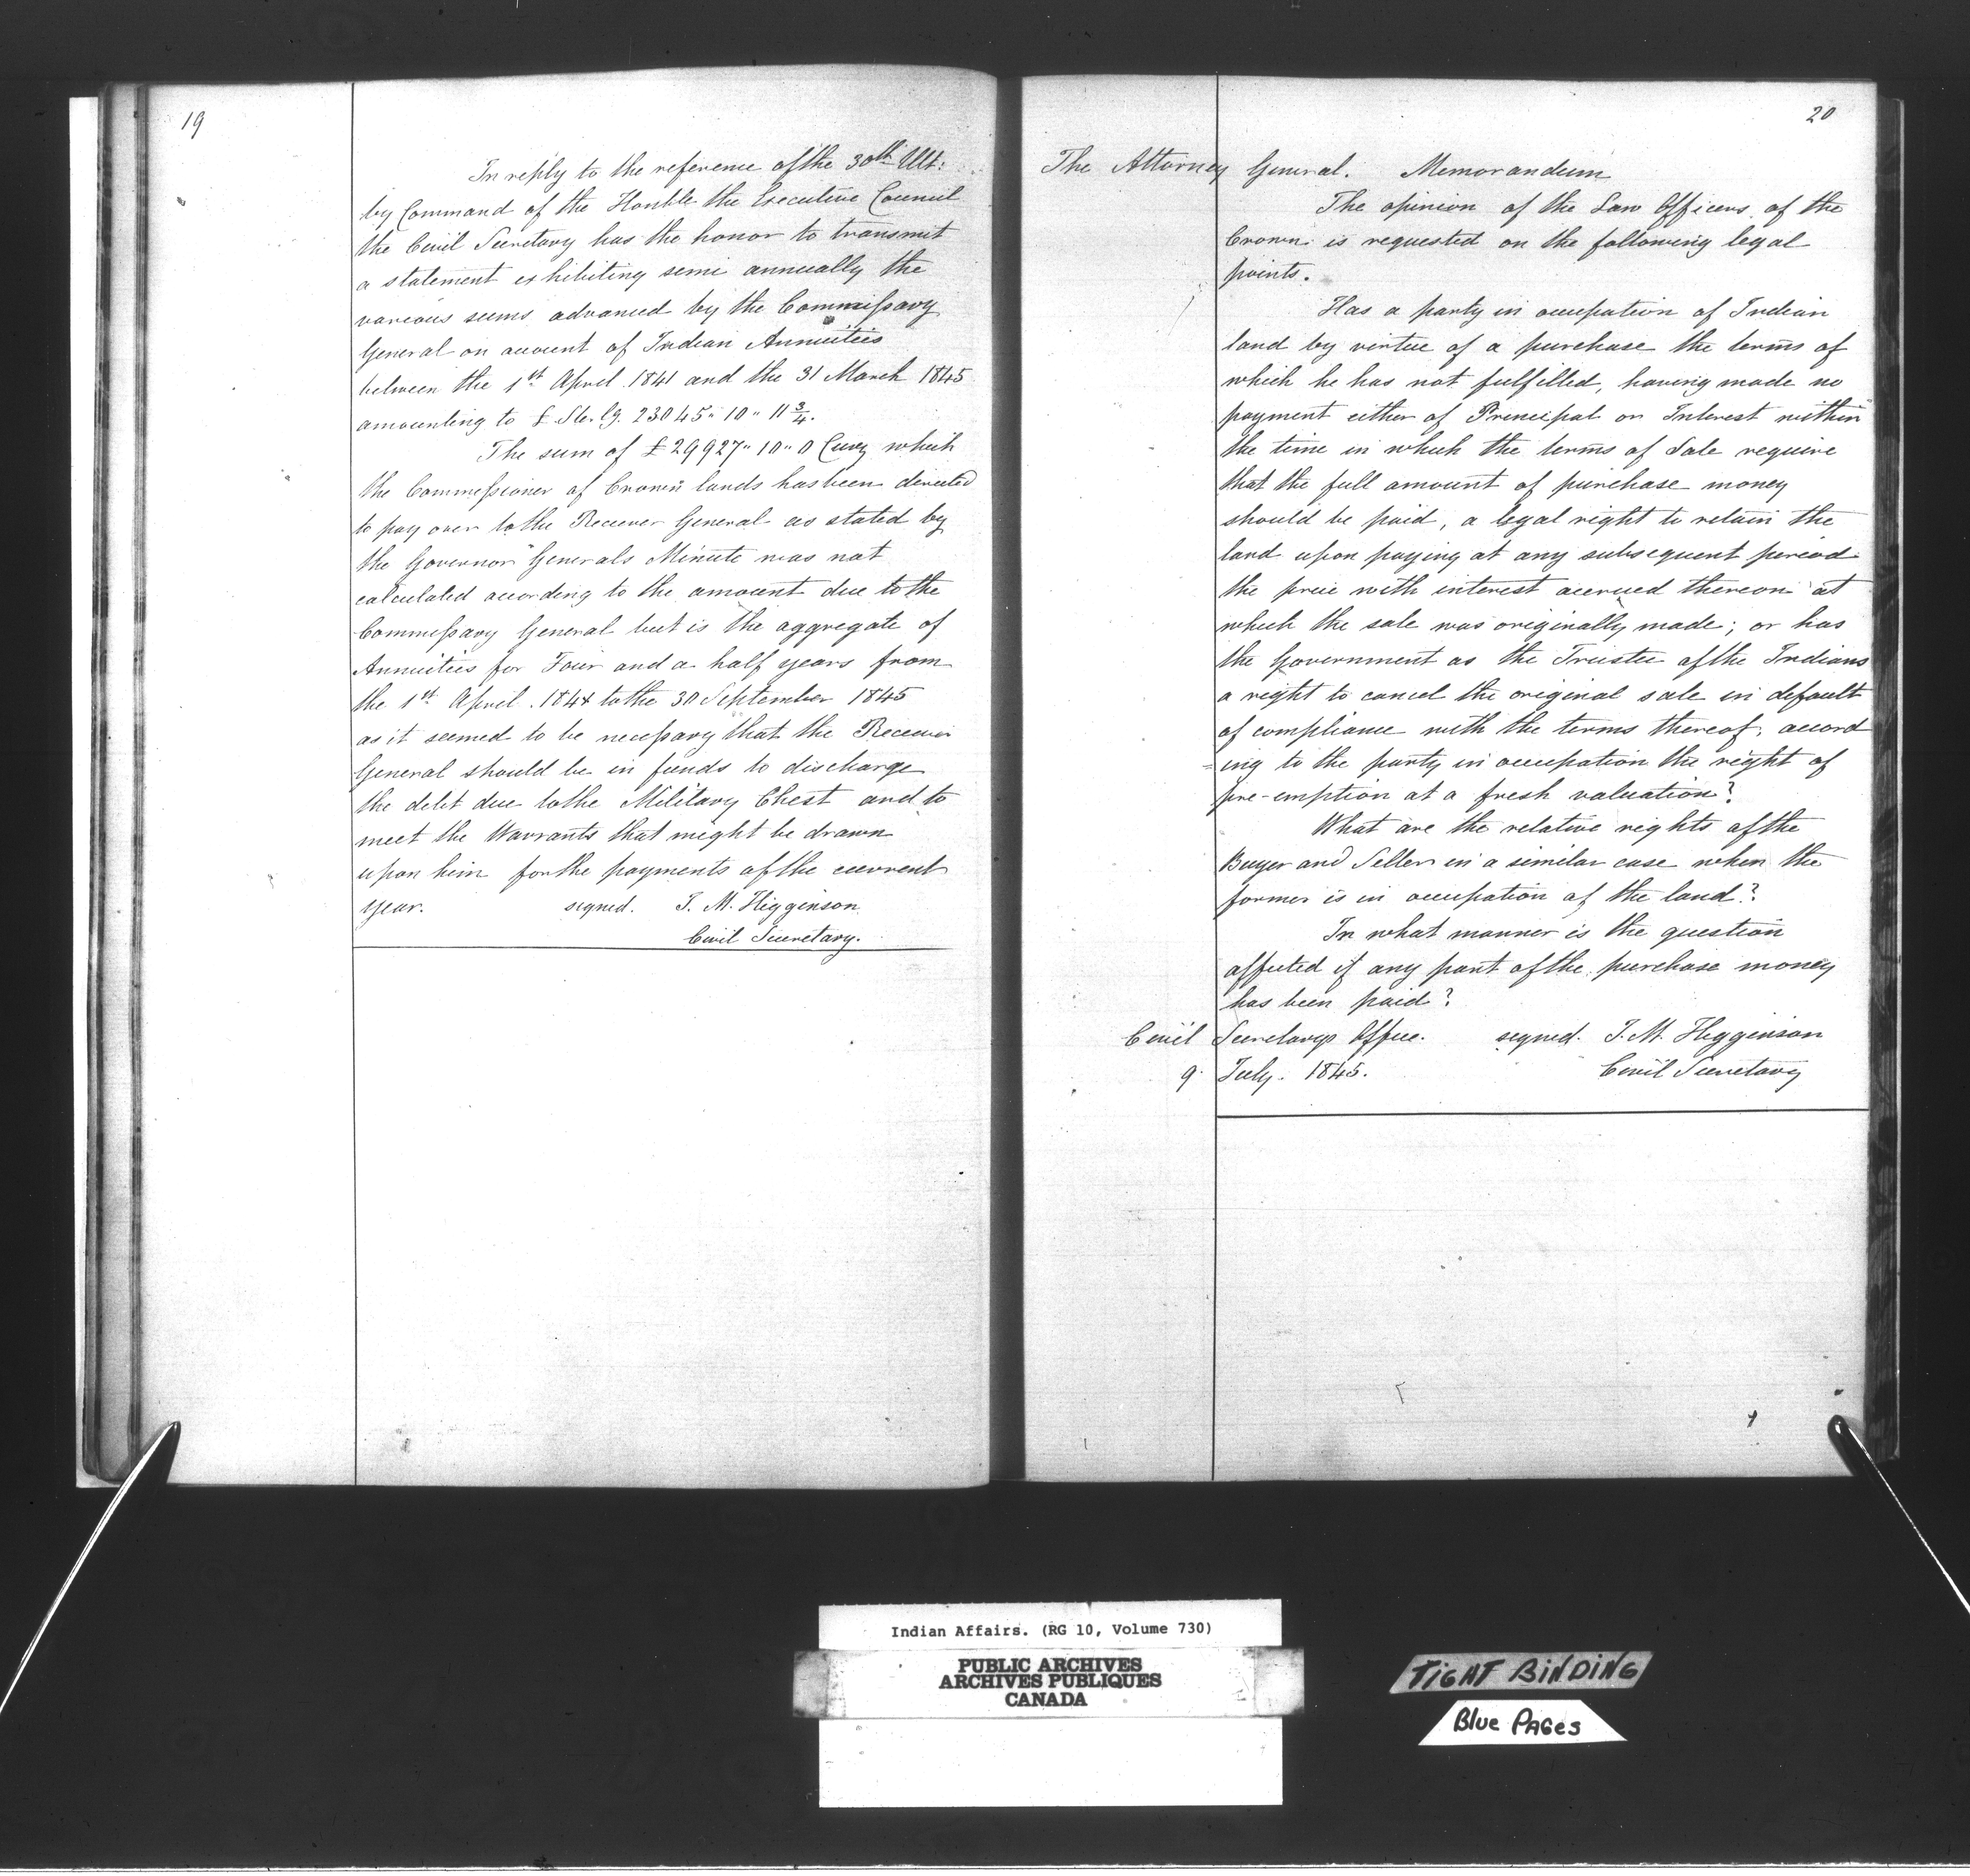 19
In reply to the reference of the 30th Ult:
by Command of the Honble the Executive Council
the Civil Secretary has the honor to transmit
a statement exhibiting semi annually the
various sums advanced by the Commissary
General on account of Indian Annuities
between the 1st April 1841 and the 31 March 1845
amounting to £ Sterlg. 23045" 10" 11 3/4.
The sum of £29927" 10" 0 Curcy which
the Commissioner of Crown lands has been directed
to pay over to the Receiver General as stated by
the Governor Generals Minute was not
calculated according to the amount due to the
Commissary General but is the aggregate of
Annuities for Four and a half years from
the 1st April. 1841 to the 30 September 1845
as it seemed to be necessary that the Receiver
General should be in funds to discharge
the debt due to the Military Chest and to
meet the Warrants that might be drawn
upon him for the payments of the current
year. signed. J. M. Higginson
Civil Secretary.
20
The Attorney General. Memorandum
The opinion of the Law Officers of the
Crown is requested on the following legal
points.
Has a party in occupation of Indian
land by virtue of a purchase the terms of
which he has not fulfilled, having made no
payment either of Principal or Interest within
the time in which the terms of Sale require
that the full amount of purchase money
should be paid, a legal right to retain the
land upon paying at any subsequent period
the price with interest accrued thereon at
which the sale was originally made; or has
the Government as the Trustee of the Indians
a right to cancel the original sale in default
of compliance with the terms thereof, accord
=ing to the party in occupation the right of
pre-emption at a fresh valuation?
What are the relative rights of the
Buyer and Seller in a similar case when the
former is in occupation of the land?
In what manner is the question
affected if any part of the purchase money
has been paid?
Civil Secretarys Office. signed. J. M. Higginson
9. July. 1845. Civil Secretary
Indian Affairs. (RG 10, Volume 730)
PUBLIC ARCHIVES
ARCHIVES PUBLIQUES
CANADA
TIGHT BINDING
Blue PAGES